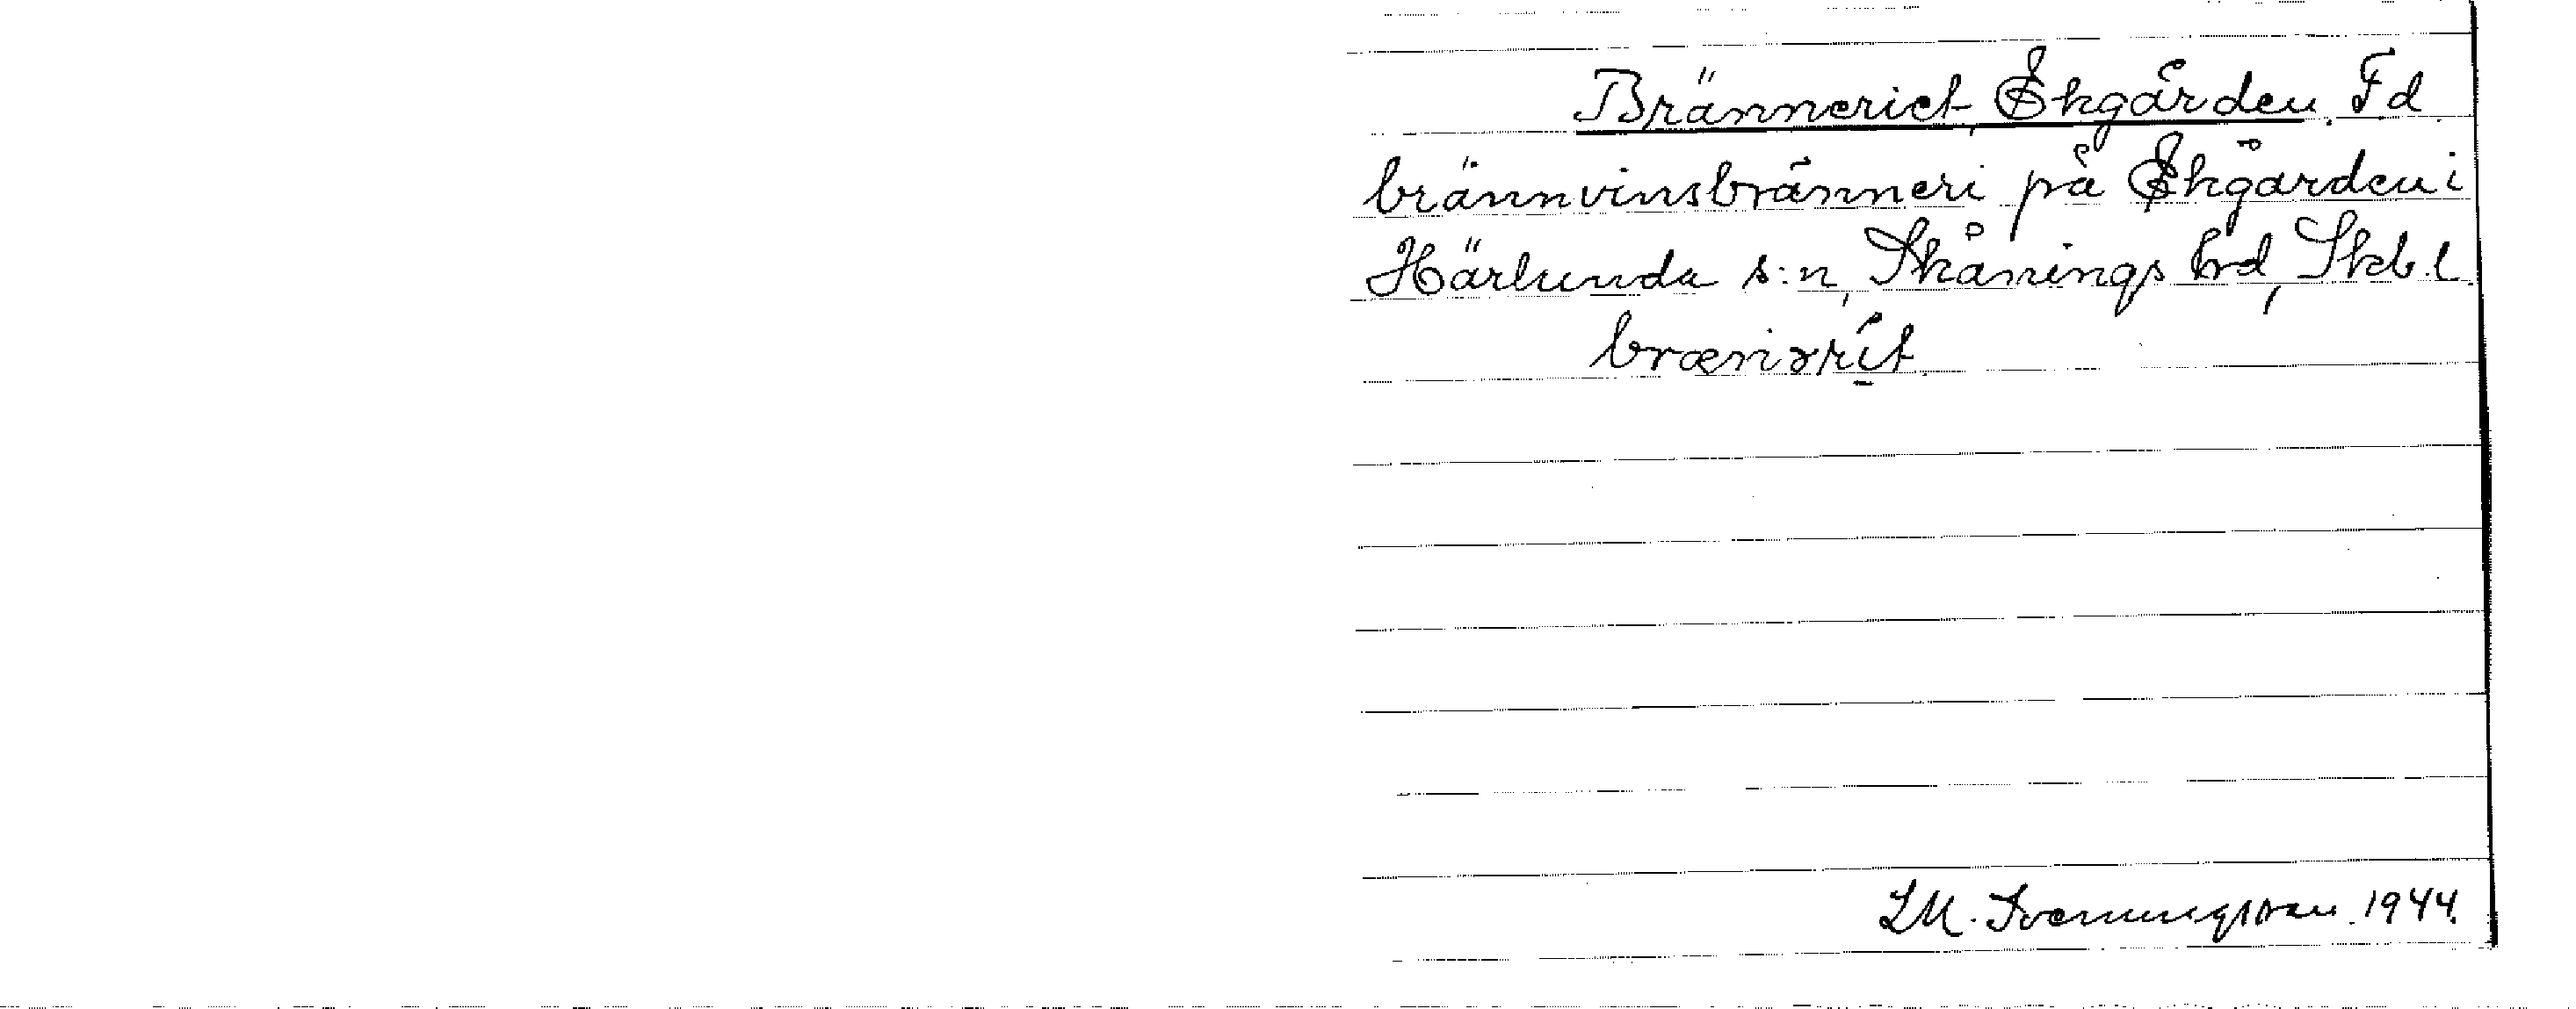 Bränneriet, Ekgården. Fd
brännvinsbränneri på Ekgården i
Härlunda s:n, Skånings hrd, Skb. l.
brænərít
SM. Svenungsson 1944.